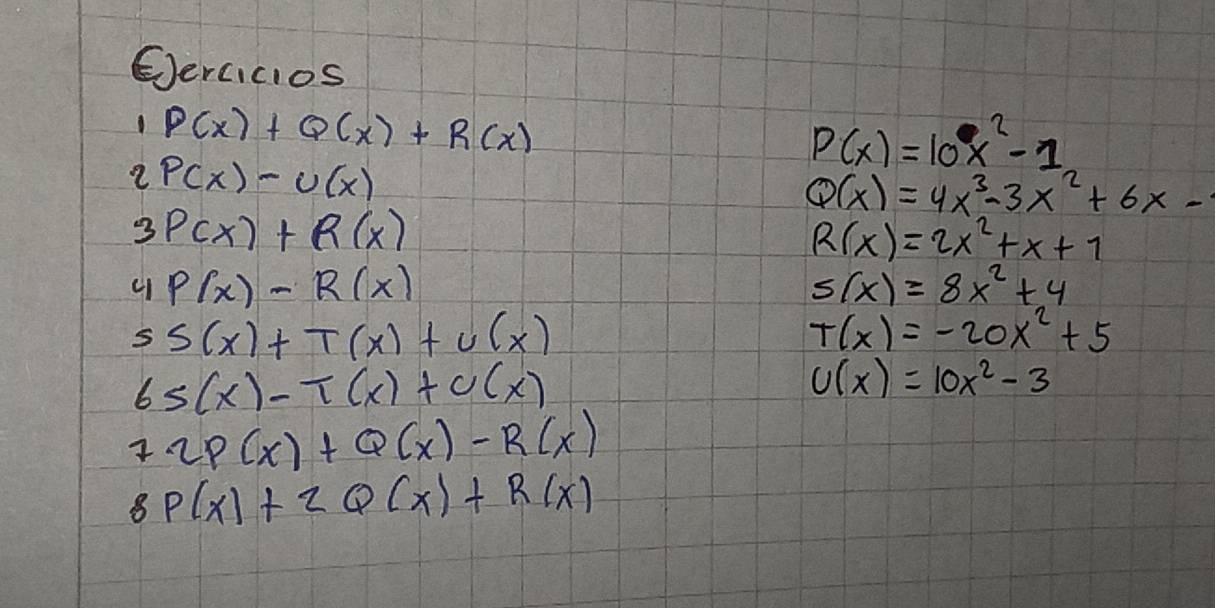 Ejercicios
1 P(x) + Q(x) + R(x)
2 P(x) - U(x)
3 P(x) + R(x)
4 P(x) - R(x)
5 S(x) + T(x) + U(x)
6 S(x) - T(x) + U(x)
7 2P(x) + Q(x) - R(x)
8 P(x) + 2Q(x) + R(x)
P(x) = 10x² - 1
Q(x) = 4x³ - 3x² + 6x -
R(x) = 2x² + x + 1
S(x) = 8x² + 4
T(x) = -20x² + 5
U(x) = 10x² - 3